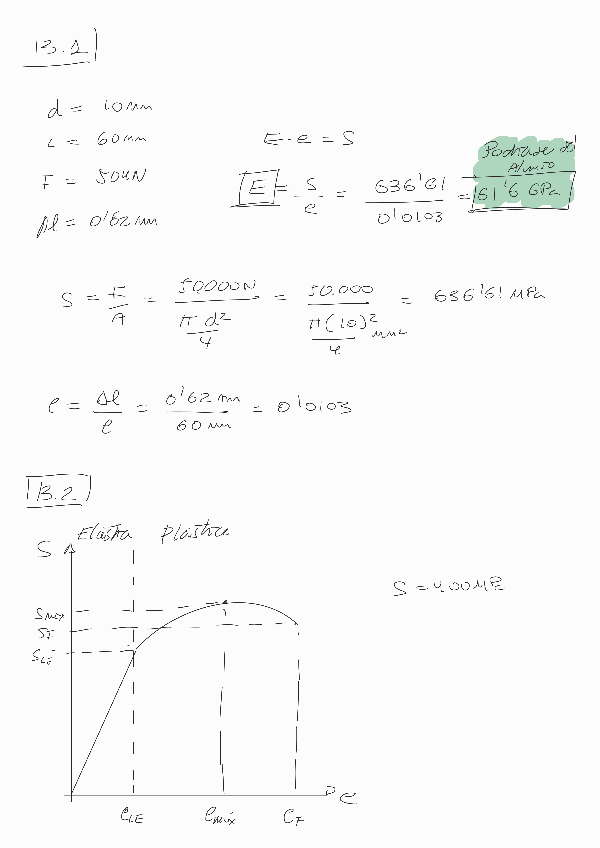 B.1
d = 10mm
L = 60mm
F = 50kN
Δl = 0'62 mm
E·e = S
E = S/e = 636'61/0'0103 = 61'6 GPa
Podría ser
Alum.
S = F/A = 50.000N/(π d²/4) = 50.000/(π(10)²/4 mm²) = 636'61 MPa
e = Δl/l = 0'62 mm/60 mm = 0'0103
B.2
Elástica Plástica
S
S máx
S F
S LE
e LE e máx e F e
S = 400 MPa